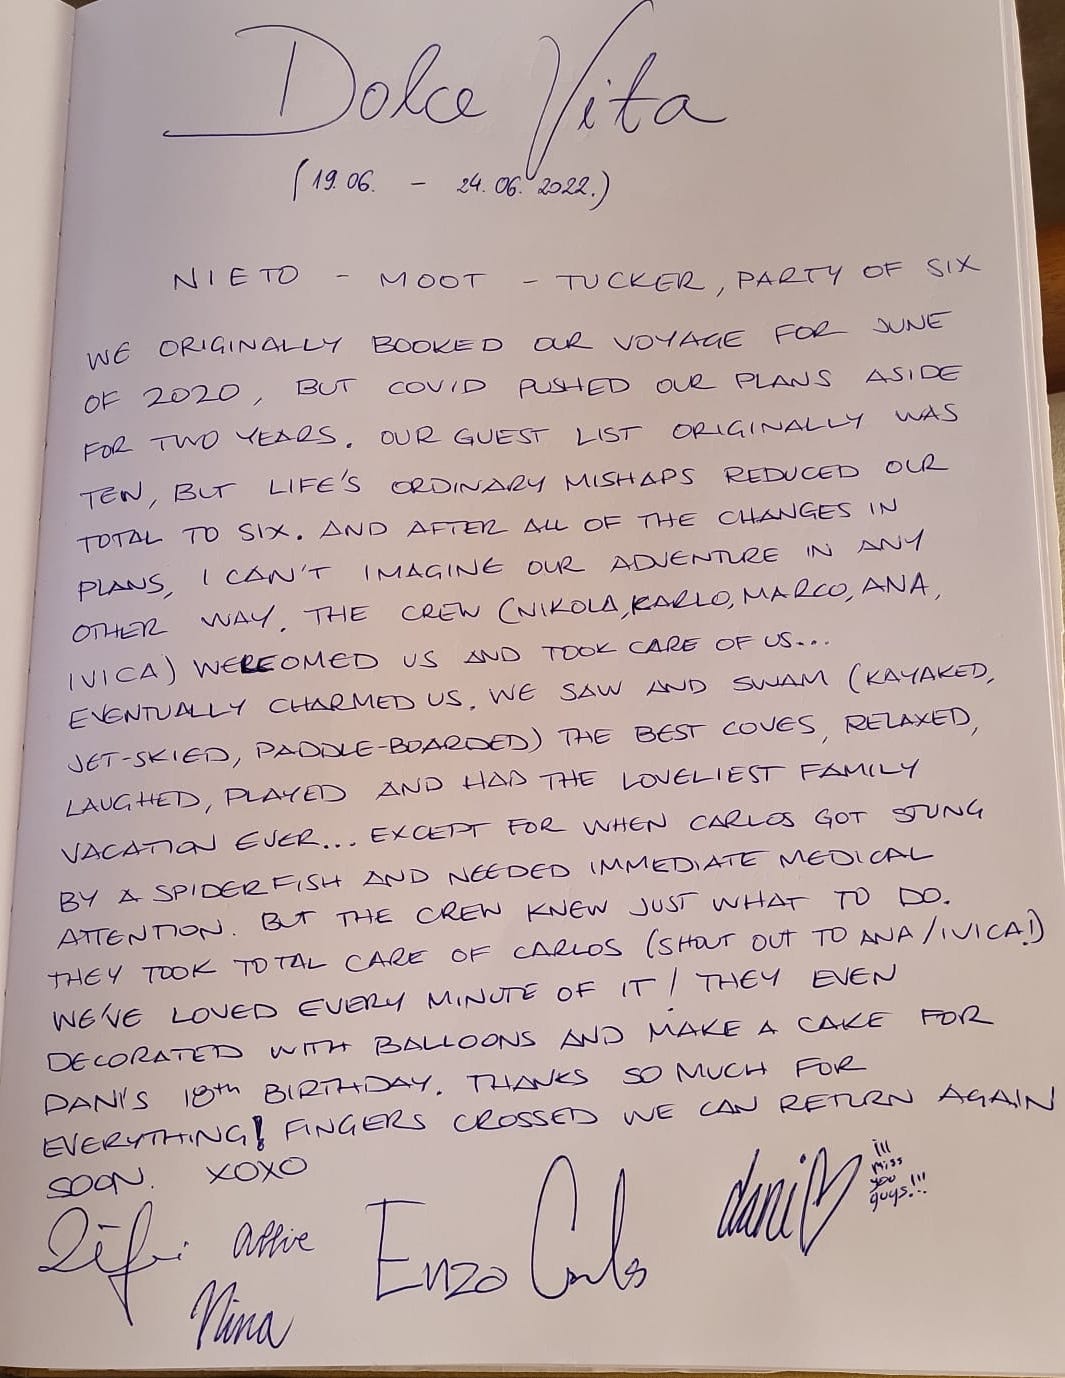 Dolce Vita
(19.06. - 24.06.2022.)
NIETO - MOOT - TUCKER, PARTY OF SIX
WE ORIGINALLY BOOKED OUR VOYAGE FOR JUNE
OF 2020, BUT COVID PUSHED OUR PLANS ASIDE
FOR TWO YEARS. OUR GUEST LIST ORIGINALLY WAS
TEN, BUT LIFE'S ORDINARY MISHAPS REDUCED OUR
TOTAL TO SIX. AND AFTER ALL OF THE CHANGES IN
PLANS, I CAN'T IMAGINE OUR ADVENTURE IN ANY
OTHER WAY. THE CREW (NIKOLA, KARLO, MARCO, ANA,
IVICA) WELCOMED US AND TOOK CARE OF US...
EVENTUALLY CHARMED US. WE SAW AND SWAM (KAYAKED,
JET-SKIED, PADDLE-BOARDED) THE BEST COVES, RELAXED,
LAUGHED, PLAYED AND HAD THE LOVELIEST FAMILY
VACATION EVER... EXCEPT FOR WHEN CARLOS GOT STUNG
BY A SPIDERFISH AND NEEDED IMMEDIATE MEDICAL
ATTENTION. BUT THE CREW KNEW JUST WHAT TO DO.
THEY TOOK TOTAL CARE OF CARLOS (SHOUT OUT TO ANA/IVICA!)
WE'VE LOVED EVERY MINUTE OF IT! THEY EVEN
DECORATED WITH BALLOONS AND MAKE A CAKE FOR
DANI'S 18th BIRTHDAY. THANKS SO MUCH FOR
EVERYTHING! FINGERS CROSSED WE CAN RETURN AGAIN
SOON. XOXO
dani
i'll
miss
you
guys!!!
Enzo Carlos
Nina